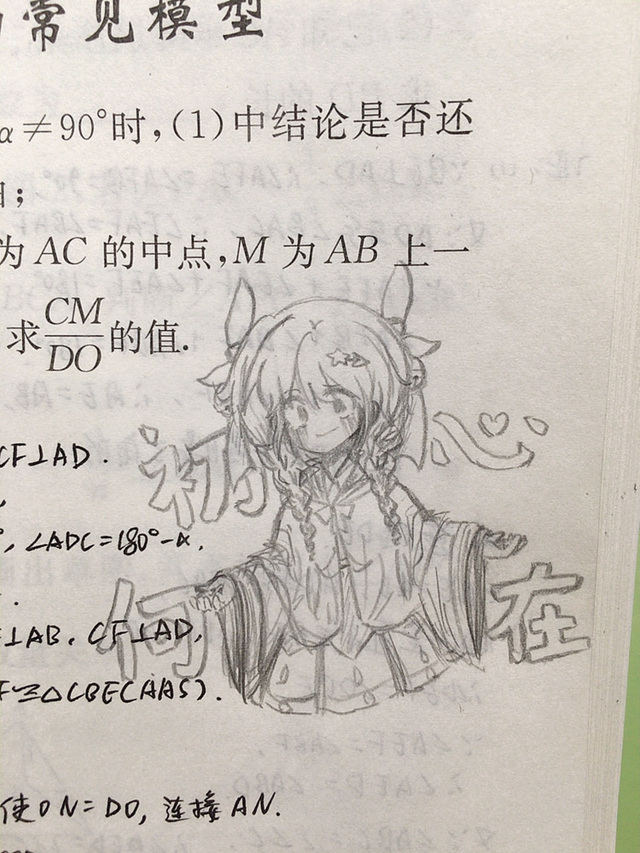 的常见模型
α≠90°时,(1)中结论是否还
为AC的中点,M为AB上一
求CM/DO的值.
CF⊥AD.
初心
,∠ADC=180°-α.
何在
⊥AB,CF⊥AD,
F≌△CBE(AAS).
使ON=DO,连接AN.